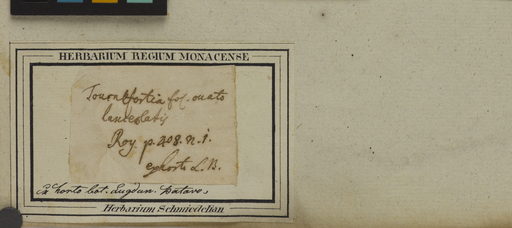 HERBARIUM REGIUM MONACENSE
Tournefortia fol. ovato
lanceolatis
Roy. p. 408. n. 1.
ex horto L. B.
Ex horto bot. Lugdun. Batavo.
Herbarium Schmiedelian